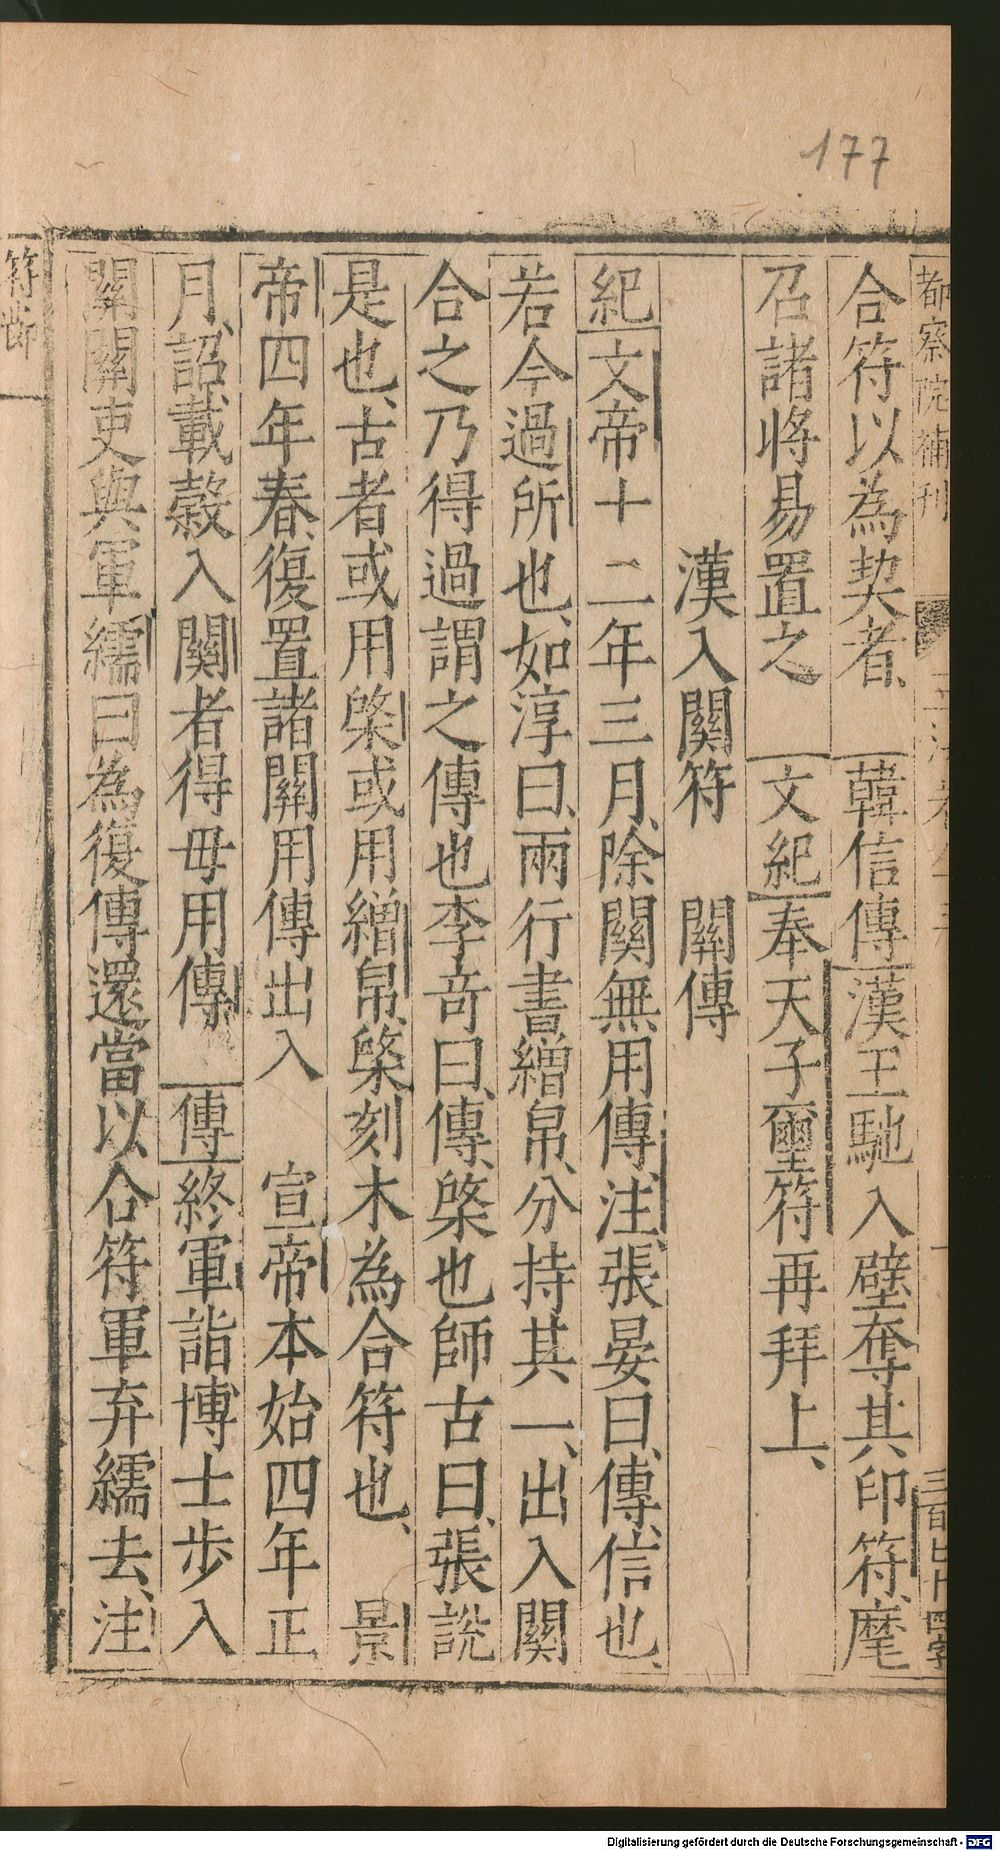 177
都察院補刊
三百七十四字
合符以為契者、韓信傳漢王馳入壁奪其印符、麾
召諸將易置之 文紀奉天子璽符再拜上、
漢入關符 關傳
紀文帝十二年三月、除關無用傳、注、張晏曰、傳、信也、
若今過所也、如淳曰、兩行書繒帛、分持其一、出入關
合之乃得過謂之傳也李竒曰、傳、棨也師古曰、張說
是也、古者或用棨或用繒帛、棨刻木為合符也、 景
帝四年春、復置諸關用傳出入 宣帝本始四年正
月、詔載穀入關者得毋用傳 傳終軍詣博士步入
關關吏與軍繻曰為復傳還當以合符軍弃繻去、注
符節
Digitalisierung gefördert durch die Deutsche Forschungsgemeinschaft - DFG